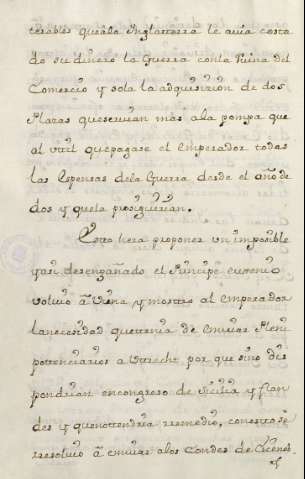 terables que ala Inglaterra le avia costa
do su dinero la Guerra con la Ruina del
Comercio y sola la adquisicion de dos
Plazas que servian mas ala pompa que
al vtil que pagase el Emperador todas
las Espensas dela Guerra desde el año de
dos y que la prosiguirian.
Esto hera proponer vn imposible
y asi desengañado el Principe eugenio
volvio â Viena y mostro al emperador
la necesidad que tenia de embiar Pleni
potenciarios a Vtrecht por que sino dis
pondrian en congreso de Sicilia y flan
des y que no ttendria rremedio, con esto se
rresolvio â embiar alos Condes de